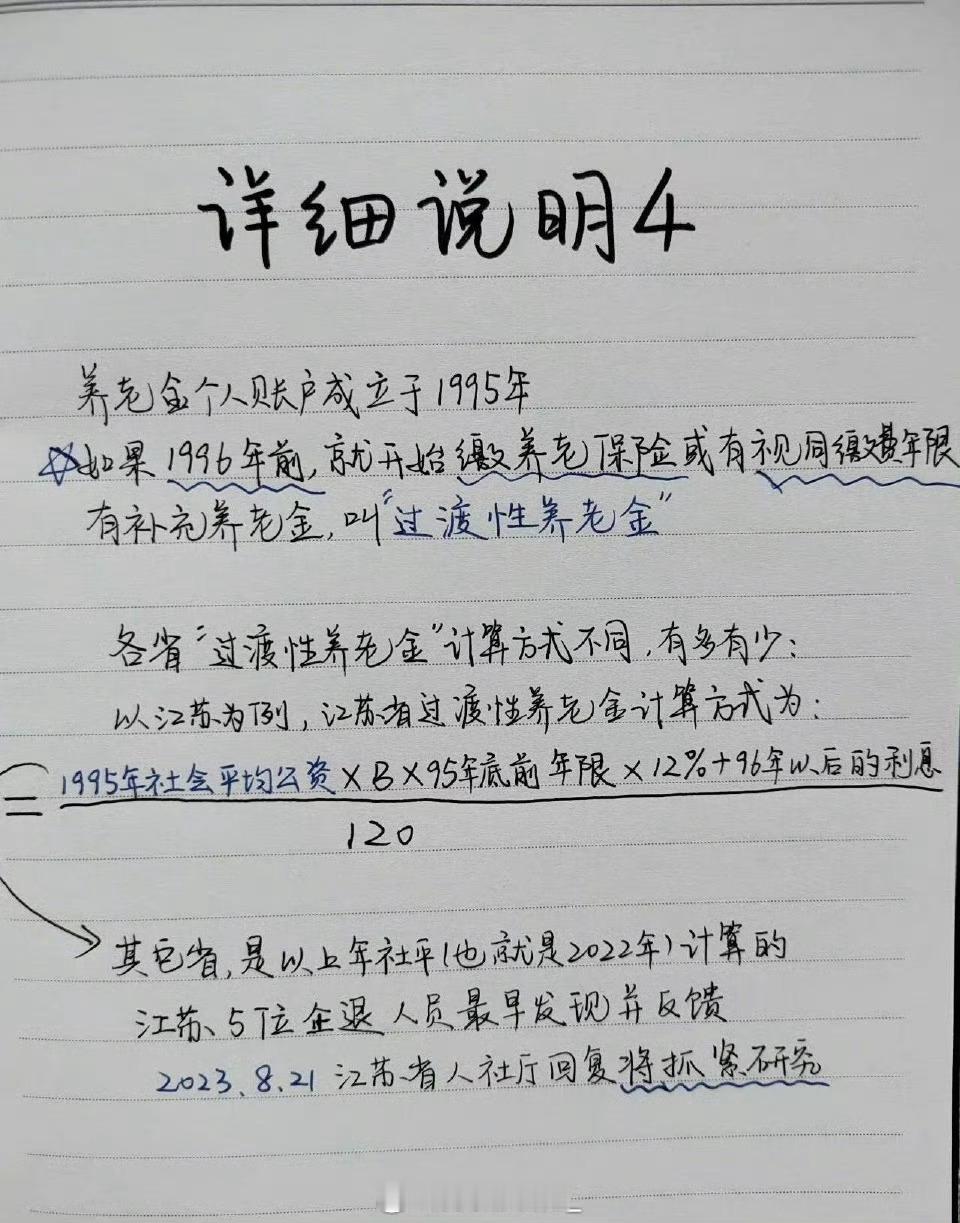 详细说明4
养老金个人账户成立于1995年
☆如果1996年前,就开始缴养老保险或有视同缴费年限
有补充养老金,叫“过渡性养老金”
各省“过渡性养老金”计算方式不同,有多有少:
以江苏为例,江苏省过渡性养老金计算方式为:
1995年社会平均公资×B×95年底前年限×12%+96年以后的利息
=
120
其它省,是以上年社平(也就是2022年)计算的
江苏、5位企退人员最早发现并反馈
2023.8.21江苏省人社厅回复将抓紧研究